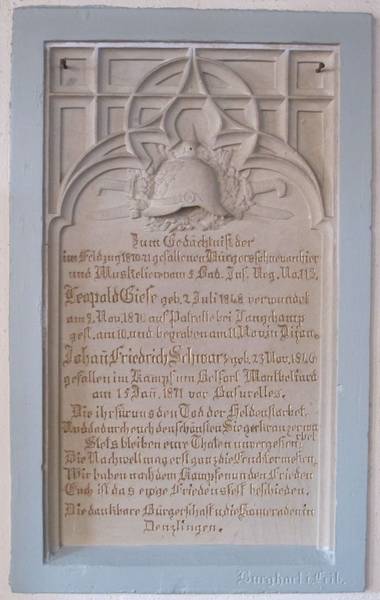 Zum Gedächtniß der
im Feldzug 1870-71 gefallenen Bürgerssöhne von hier
und Muskeliere vom 5. Bad. Inf. Reg. No. 113.
Leopold Giese geb. 2. Juli 1848 verwundet
am 9. Nov. 1870 auf Patrolle bei Longchamp
gest. am 10. und begraben am 11. Nov. in Dijon.
Johañ Friedrich Schwarz geb. 23. Nov. 1846
gefallen im Kampf um Belfort Montbeliard
am 15. Jan. 1871 vor
Die ihr für uns den Tod der Helden starbet,
Und dadurch euch den schönsten Siegerkranz erwarbet
Stets bleiben eure Thaten unvergessen,
Die Nachwelt mag erst ganz die Früchte messen,
Wir haben nach dem Kampfe nun den Frieden
Euch ist das ewge Friedensfest beschieden.
Die dankbare Bürgerschaft u. die Kameraden in
Denzlingen.